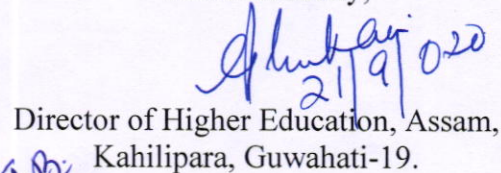 21/9/020
Director of Higher Education, Assam,
Kahilipara, Guwahati-19.